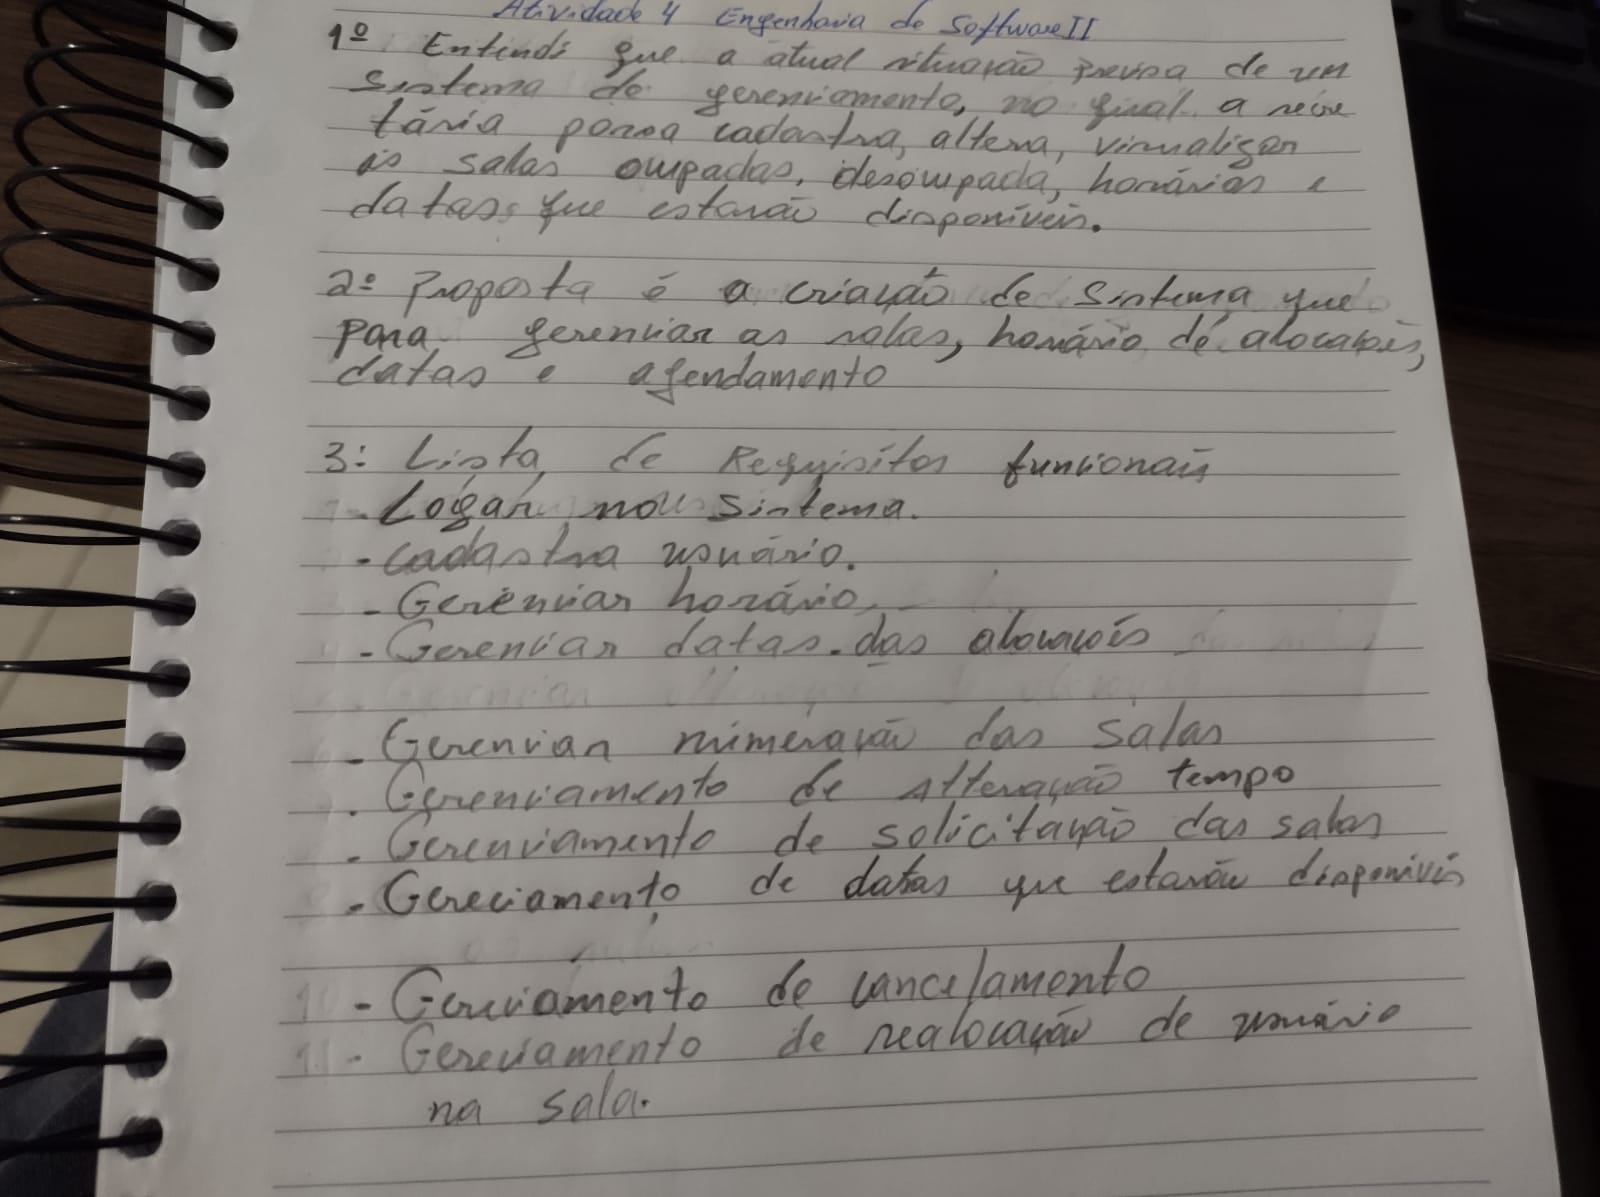 Atividade 4 Engenharia de Software II
1º Entendi que a atual situação precisa de um
sistema de gerenciamento, no qual a secre
tária possa cadastra, altera, visualizar
as salas ocupadas, desocupada, horários e
datas que estarão disponíveis.
2º Proposta é a criação de sistema que
para gerenciar as salas, horário de alocações,
datas e agendamento
3: Lista de Requisitos funcionais
- Logar no sistema.
- cadastra usuário.
- Gerenciar horário
- Gerenciar datas das alocações
- Gerenciar numeração das salas
- Gerenciamento de Alteração tempo
- Gerenciamento de solicitação das salas
- Gereciamento de datas que estarão disponíveis
10 - Gereciamento de cancelamento
11 - Gereciamento de realocação de usuário
na sala.